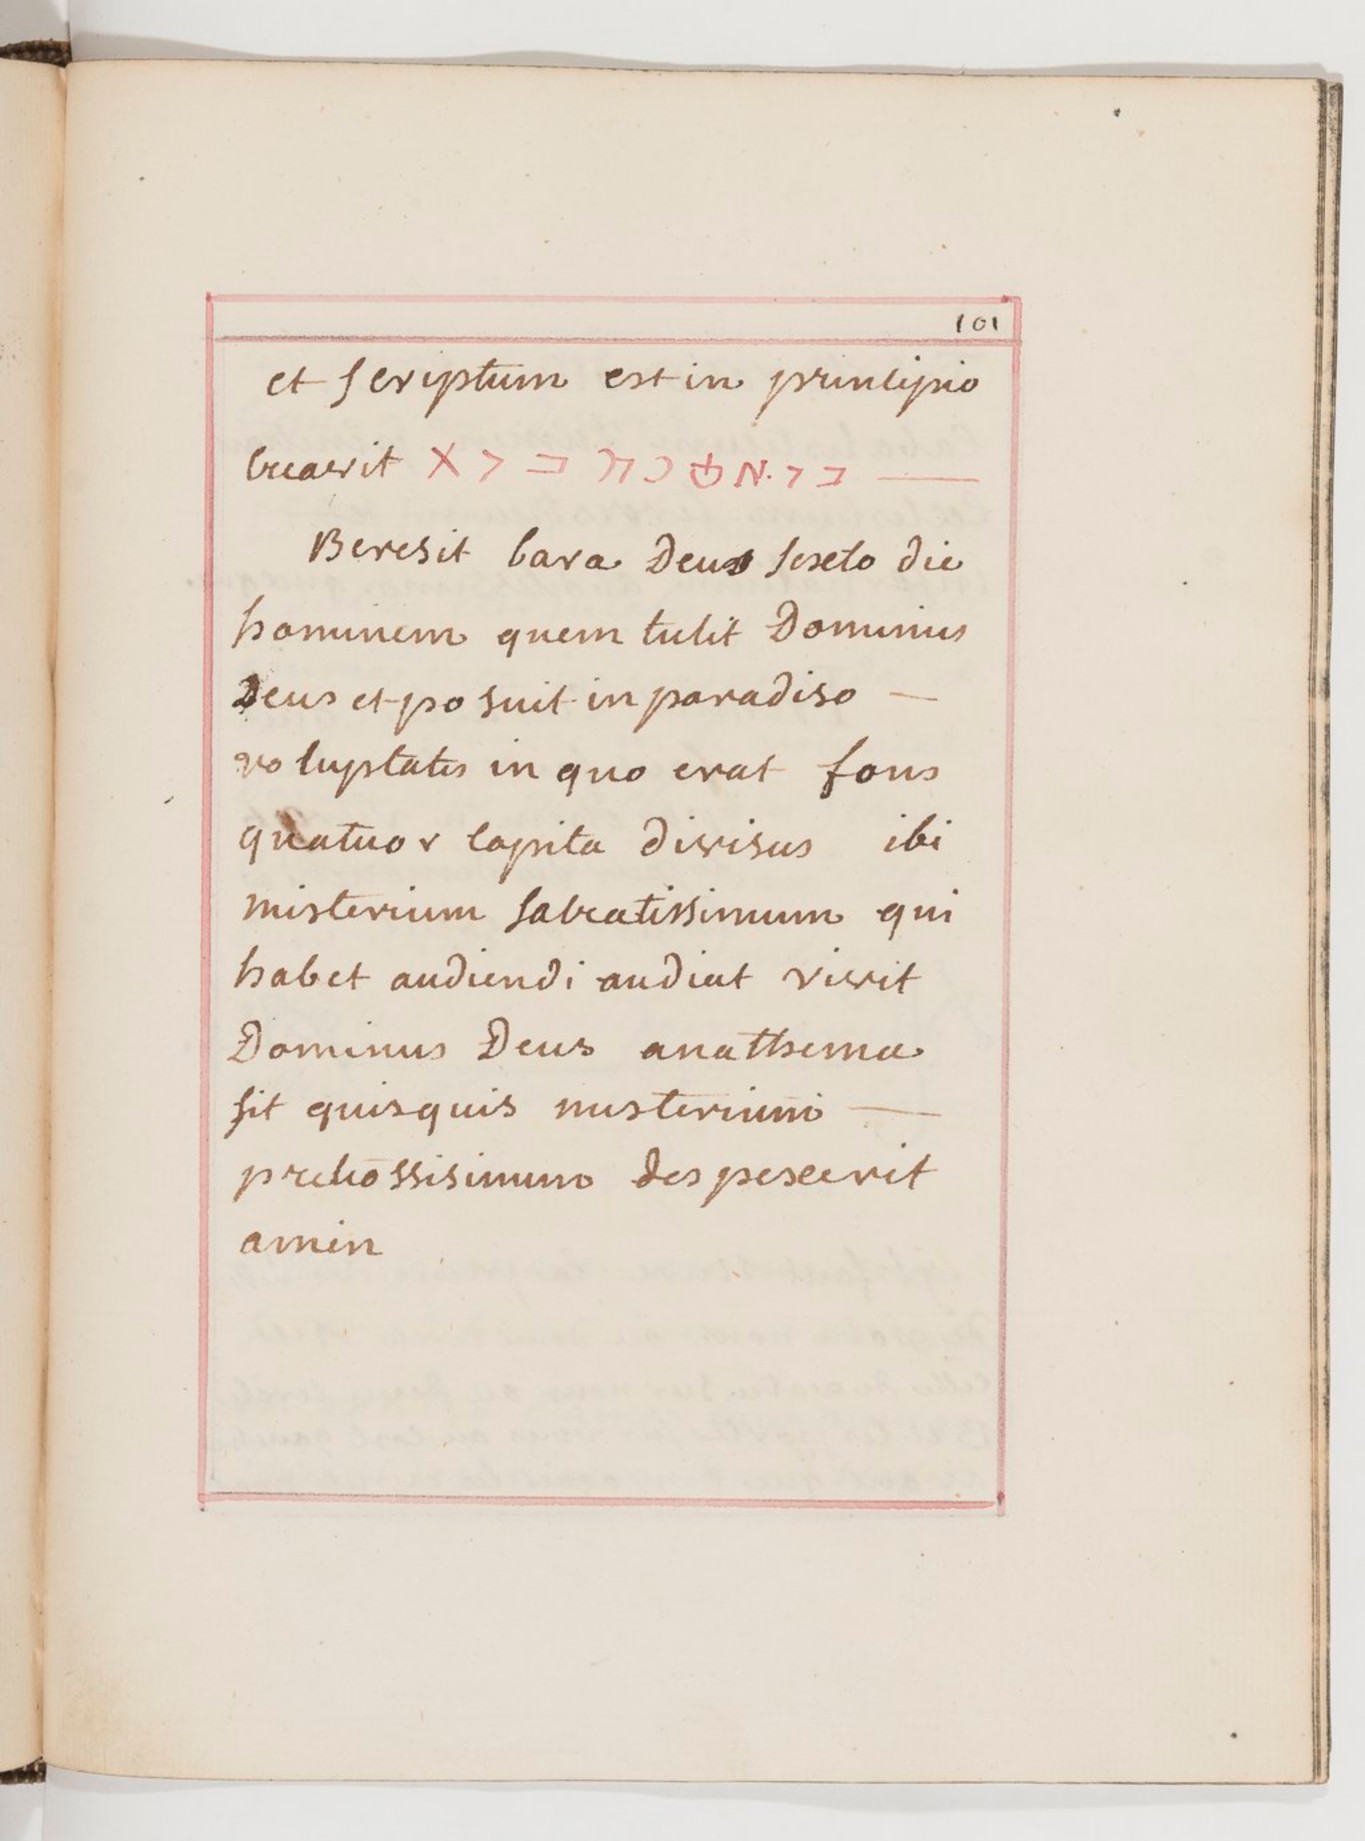 101
et scriptum est in principio
creavit
Beresit bara Deus sexto die
hominem quem tulit Dominus
Deus et posuit in paradiso —
voluptatis in quo erat fons
quatuor capita divisus ibi
misterium sacratissimum qui
habet audiendi audiat vivit
Dominus Deus anathema
sit quisquis misterium —
pretiossisimum despexerit
amin